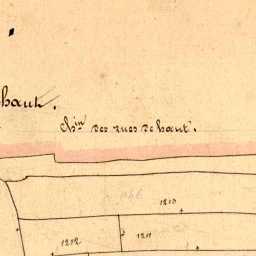 haut.
ch.in des rues de haut.
1210
1212
1211